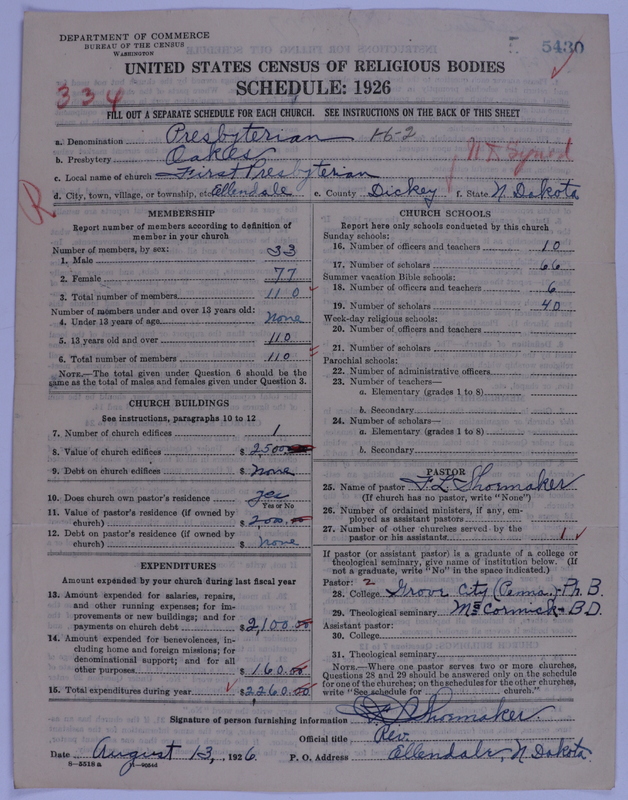 DEPARTMENT OF COMMERCE
BUREAU OF THE CENSUS
WASHINGTON
5430
UNITED STATES CENSUS OF RELIGIOUS BODIES
SCHEDULE: 1926
334
FILL OUT A SEPARATE SCHEDULE FOR EACH CHURCH. SEE INSTRUCTIONS ON THE BACK OF THIS SHEET
a. Denomination Presbyterian 16-2
b. Presbytery Oakes N D Synod
c. Local name of church First Presbyterian
d. City, town, village, or township, etc. Ellendale e. County Dickey f. State N Dakota
R
MEMBERSHIP
Report number of members according to definition of
member in your church
Number of members, by sex:
1. Male 33
2. Female 77
3. Total number of members 110
Number of members under and over 13 years old:
4. Under 13 years of age none
5. 13 years old and over 110
6. Total number of members 110
NOTE.—The total given under Question 6 should be the
same as the total of males and females given under Question 3.
CHURCH BUILDINGS
See instructions, paragraphs 10 to 12
7. Number of church edifices 1
8. Value of church edifices $ 2,500.00
9. Debt on church edifices $ none
10. Does church own pastor's residence yes
Yes or No
11. Value of pastor's residence (if owned by
church) $ 200.00
12. Debt on pastor's residence (if owned by
church) $ none
EXPENDITURES
Amount expended by your church during last fiscal year
13. Amount expended for salaries, repairs,
and other running expenses; for im-
provements or new buildings; and for
payments on church debt $ 2,100.00
14. Amount expended for benevolences, in-
cluding home and foreign missions; for
denominational support; and for all
other purposes $ 160.00
15. Total expenditures during year $ 2260.00
CHURCH SCHOOLS
Report here only schools conducted by this church
Sunday schools:
16. Number of officers and teachers 10
17. Number of scholars 66
Summer vacation Bible schools:
18. Number of officers and teachers 6
19. Number of scholars 40
Week-day religious schools:
20. Number of officers and teachers
21. Number of scholars
Parochial schools:
22. Number of administrative officers
23. Number of teachers—
a. Elementary (grades 1 to 8)
b. Secondary
24. Number of scholars—
a. Elementary (grades 1 to 8)
b. Secondary
PASTOR
25. Name of pastor F. L. Shoemaker
(If church has no pastor, write "None")
26. Number of ordained ministers, if any, em-
ployed as assistant pastors
27. Number of other churches served by the
pastor or his assistants 1
If pastor (or assistant pastor) is a graduate of a college or
theological seminary, give name of institution below. (If
not a graduate, write "No" in the space indicated.)
Pastor: 2
28. College Grove City (Penna.) - Ph. B.
29. Theological seminary McCormick - B D.
Assistant pastor:
30. College
31. Theological seminary
NOTE.—Where one pastor serves two or more churches,
Questions 28 and 29 should be answered only on the schedule
for one of the churches; on the schedules for the other churches,
write "See schedule for church."
Signature of person furnishing information F. L. Shoemaker.
Official title Rev.
Date August 13, 1926 P. O. Address Ellendale, N Dakota.
8—5518 a